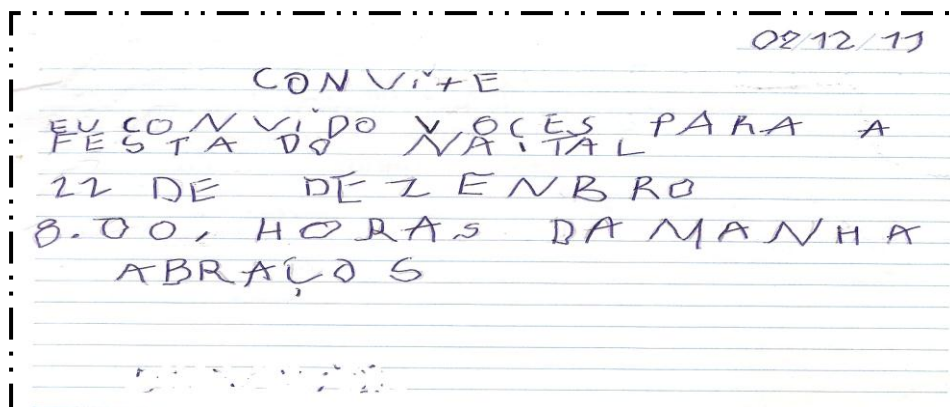 02/12/11
CONViTE
EU CONViDO VOCES PARA A
FESTA DO NAiTAL
22 DE DEZENBRO
8.00, HORAS DA MANHA
ABRAÇOS